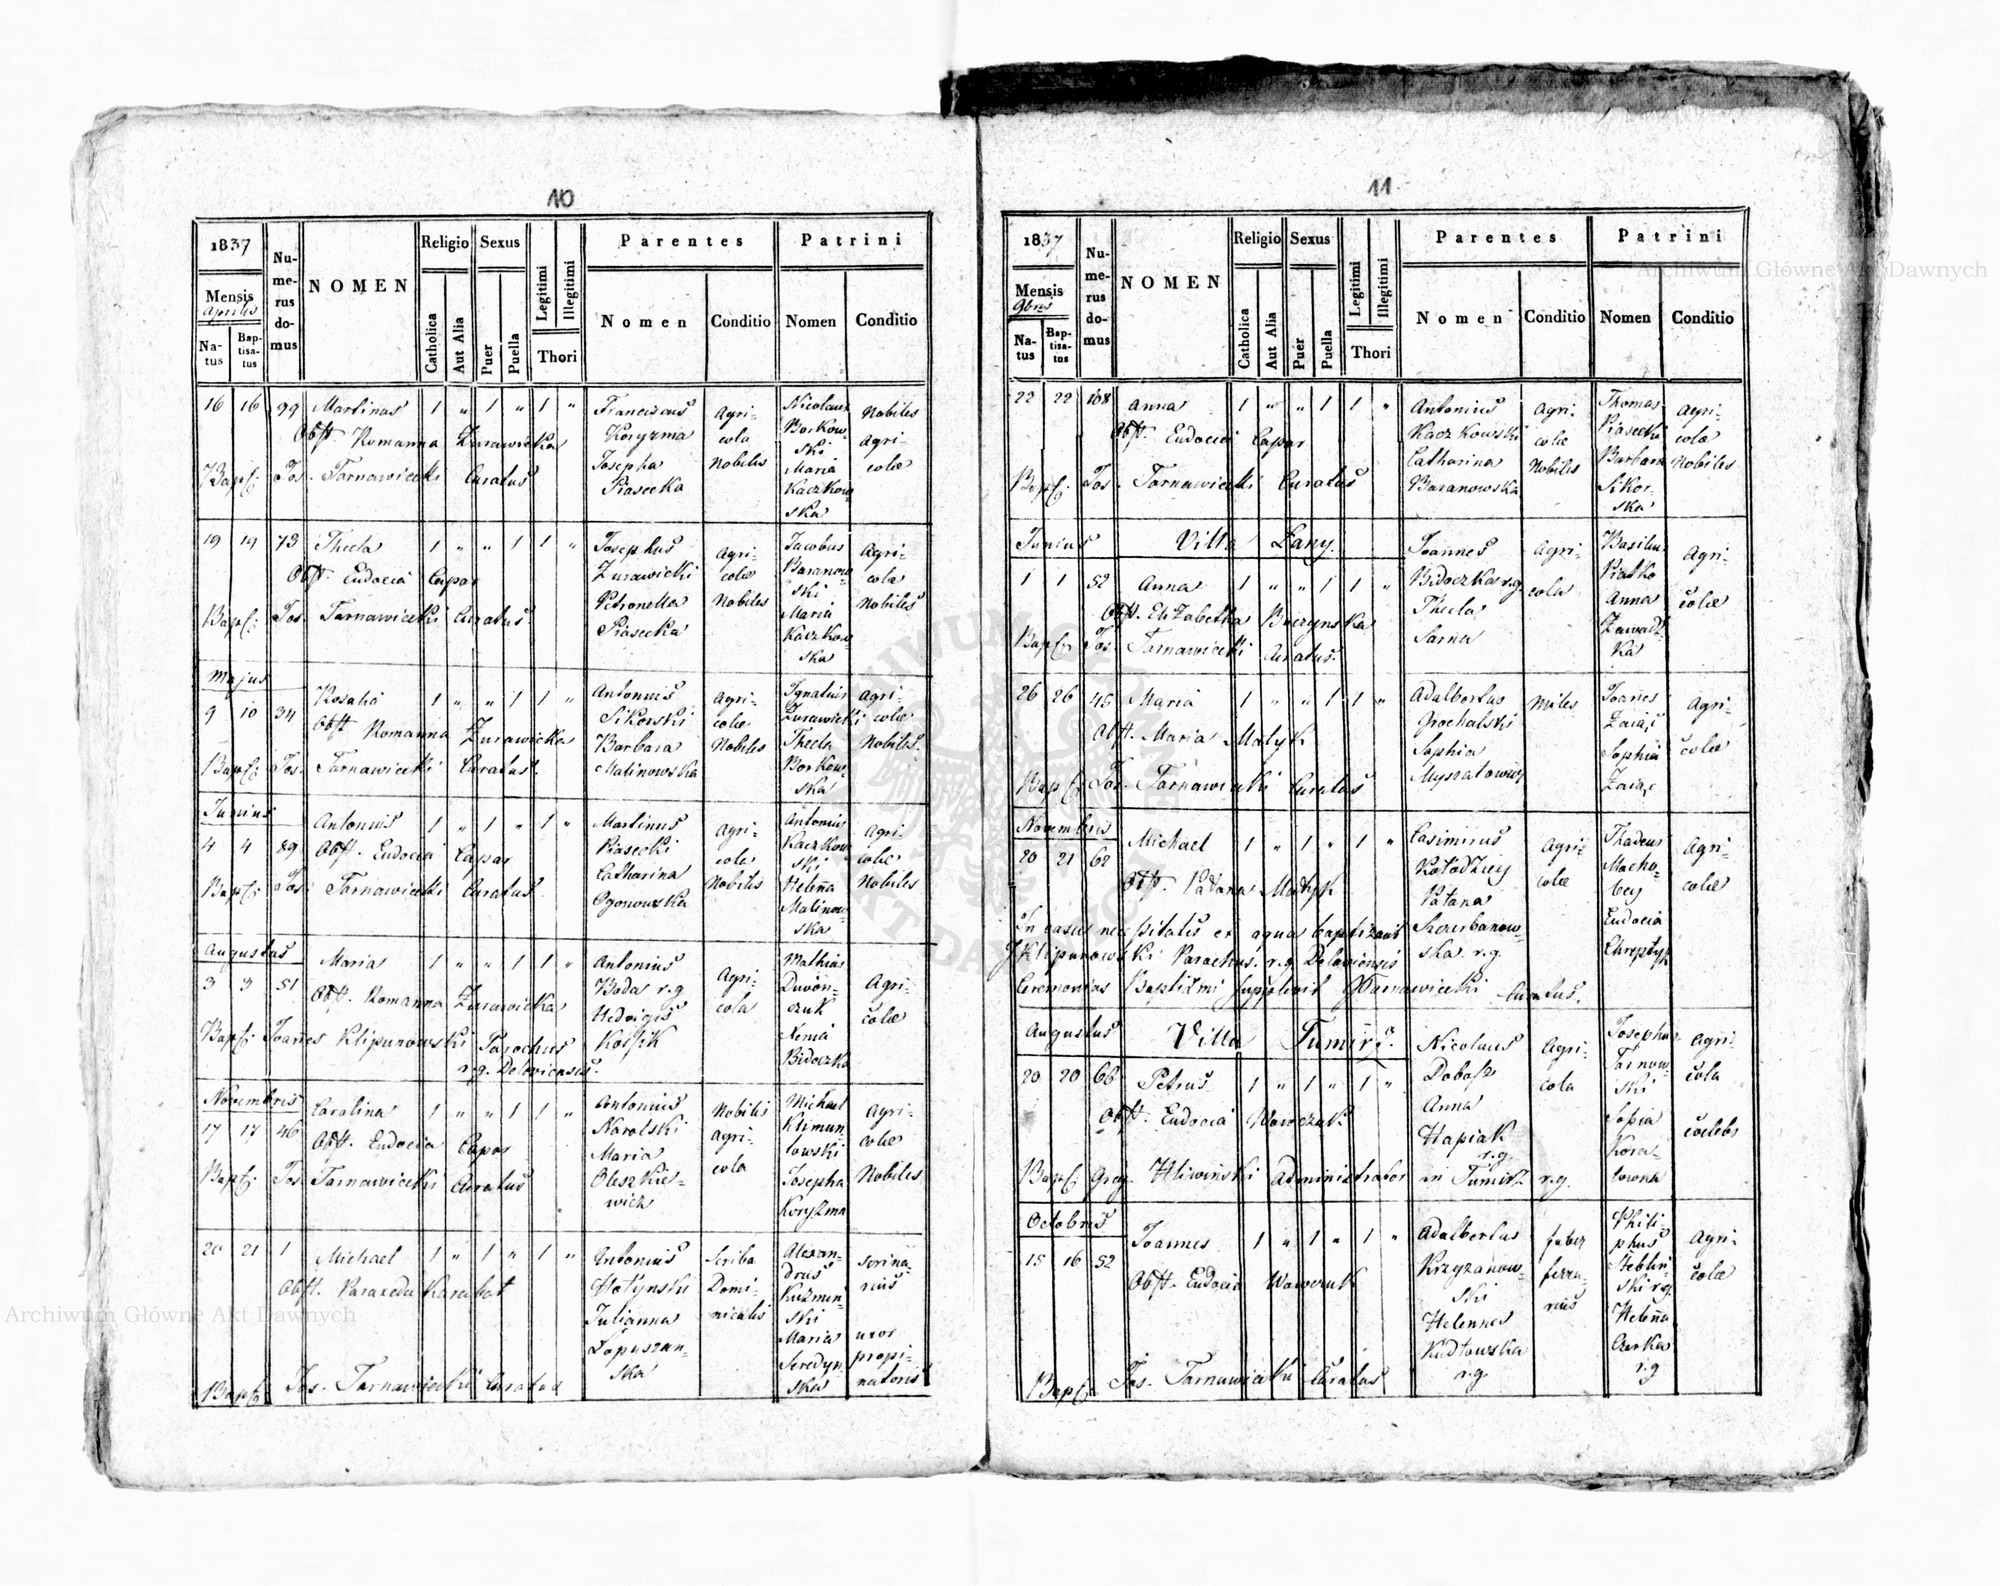 10
1837
Numerus domus
NOMEN
Religio
Sexus
Legitimi
Illegitimi
Parentes
Patrini
Mensis
Aprilis
Natus
Baptisatus
Catholica
Aut Alia
Puer
Puella
Thori
Nomen
Conditio
Nomen
Conditio
16 16 99 Martinus 1 " 1 " 1 "
Obst. Romanna Zurawicka
Bapt. Jos. Tarnawiecki Curatus
Franciscus
Koryzma
Josepha
Piasecka
Agri-
cola
Nobilis
Nicolaus
Borkow-
ski
Maria
Kaczkow-
ska
Nobiles
Agri-
colæ
19 19 73 Thecla 1 " " 1 1 "
Obst. Eudocia Capar
Bapt. Jos. Tarnawiecki Curatus
Josephus
Zurawiecki
Petronella
Piasecka
Agri-
colæ
Nobiles
Jacobus
Baranow-
ski
Maria
Kaczkow-
ska
Agri-
colæ
Nobiles
Majus
9 10 34 Rosalia 1 " " 1 1 "
Obst. Romanna Zurawicka
Bapt. Jos. Tarnawiecki Curatus
Antonius
Sikorski
Barbara
Malinowska
Agri-
colæ
Nobiles
Ignatius
Zurawiecki
Thecla
Borkow-
ska
Agri-
colæ
Nobiles
Junius
4 4 89 Antonius 1 " 1 " 1 "
Obst. Eudocia Capar
Bapt. Jos. Tarnawiecki Curatus
Martinus
Piasecki
Catharina
Ogonowska
Agri-
cola
Nobilis
Antonius
Kaczkow-
ski
Helenna
Malinow-
ska
Agri-
colæ
Nobiles
Augustus
3 3 51 Maria 1 " " 1 1 "
Obst. Romanna Zurawicka
Bapt. Joannes Klipunowski Parochus
r.g. Delaviensis
Antonius
Boda r.g
Hedvigis
Kossik
Agri-
cola
Mathias
Duvon-
czuk
Xenia
Bidoczka
Agri-
colæ
Novembris
17 17 46 Carolina 1 " " 1 1 "
Obst. Eudocia Capar
Bapt. Jos. Tarnawiecki Curatus
Antonius
Narolski
Maria
Oleszkie-
wicz
Nobilis
Agri-
cola
Michael
Klimun-
towski
Josepha
Koryzma
Agri-
colæ
Nobiles
20 21 1 Michael 1 " 1 " 1 "
Obst. Paraxeda Karabot
Bapt. Jos. Tarnawiecki Curatus
Antonius
Hołynski
Julianna
Łopuszan-
ska
Scriba
Domi-
nicalis
Alexan-
drus
Kuzmin-
ski
Maria
Seredyn-
ska
scrina-
rius
uxor
propi-
natoris
11
1837
Numerus domus
NOMEN
Religio
Sexus
Legitimi
Illegitimi
Parentes
Patrini
Mensis
9bris
Natus
Baptisatus
Catholica
Aut Alia
Puer
Puella
Thori
Nomen
Conditio
Nomen
Conditio
22 22 108 Anna 1 " " 1 1 "
Obst. Eudocia Capar
Bapt. Jos. Tarnawiecki Curatus
Antonius
Kaczkowski
Catharina
Baranowska
Agri-
colæ
Nobiles
Thomas
Piasecki
Barbara
Sikor-
ska
Agri-
colæ
Nobiles
Junius Villa Łany
1 1 52 Anna 1 " " 1 1 "
Obst. Elizabetha Buczynska
Bapt. Jos. Tarnawiecki Curatus
Joannes
Bidoczka r.g.
Thecla
Sarna
Agri-
cola
Basilius
Piatko
Anna
Zawadz-
ka
Agri-
colæ
26 26 45 Maria 1 " " 1 1 "
Obst. Maria Matyk
Bapt. Jos. Tarnawiecki Curatus
Adalbertus
Grochalski
Sophia
miles
Joannes
Zaiąc
Sophia
Zaiąc
Agri-
colæ
Novembris
20 21 62 Michael 1 " 1 " 1 "
Obst. Matyk
In casu necessitatis ex aqua baptizavit
J. Klipunowski Parochus r.g. Delaviensis
Ceremonias Baptismi supplevit J. Tarnawiecki Curatus.
Casimirus
Kołodziey
Szczerbanow-
ska r.g.
Agri-
colæ
Thadeus
Macho-
bey
Eudocia
Agri-
colæ
Augustus Villa Tumirz.
20 20 66 Petrus 1 " 1 " 1 "
Obst. Eudocia Wawczuk
Bapt. Greg. Hliwiński Administrator in Tumirz r.g.
Nicolaus
Dobosz
Anna
Hapiak
r.g.
Agri-
cola
Josephus
Tarnow-
ski
Sophia
Agri-
cola
cœlebs
Octobris
15 16 52 Joannes 1 " 1 " 1 "
Obst. Eudocia Wawczuk
Bapt. Jos. Tarnawiecki Curatus
Adalbertus
Krzyzanow-
ski
Helennes
Kudłowska
r.g.
faber
ferra-
rius
Phili-
phus
Steblin-
ski r.g.
Helenna
Czerka
r.g
Agri-
colæ
Archiwum Główne Akt Dawnych
Archiwum Główne Akt Dawnych
ARCHIWUM GŁÓWNE AKT DAWNYCH